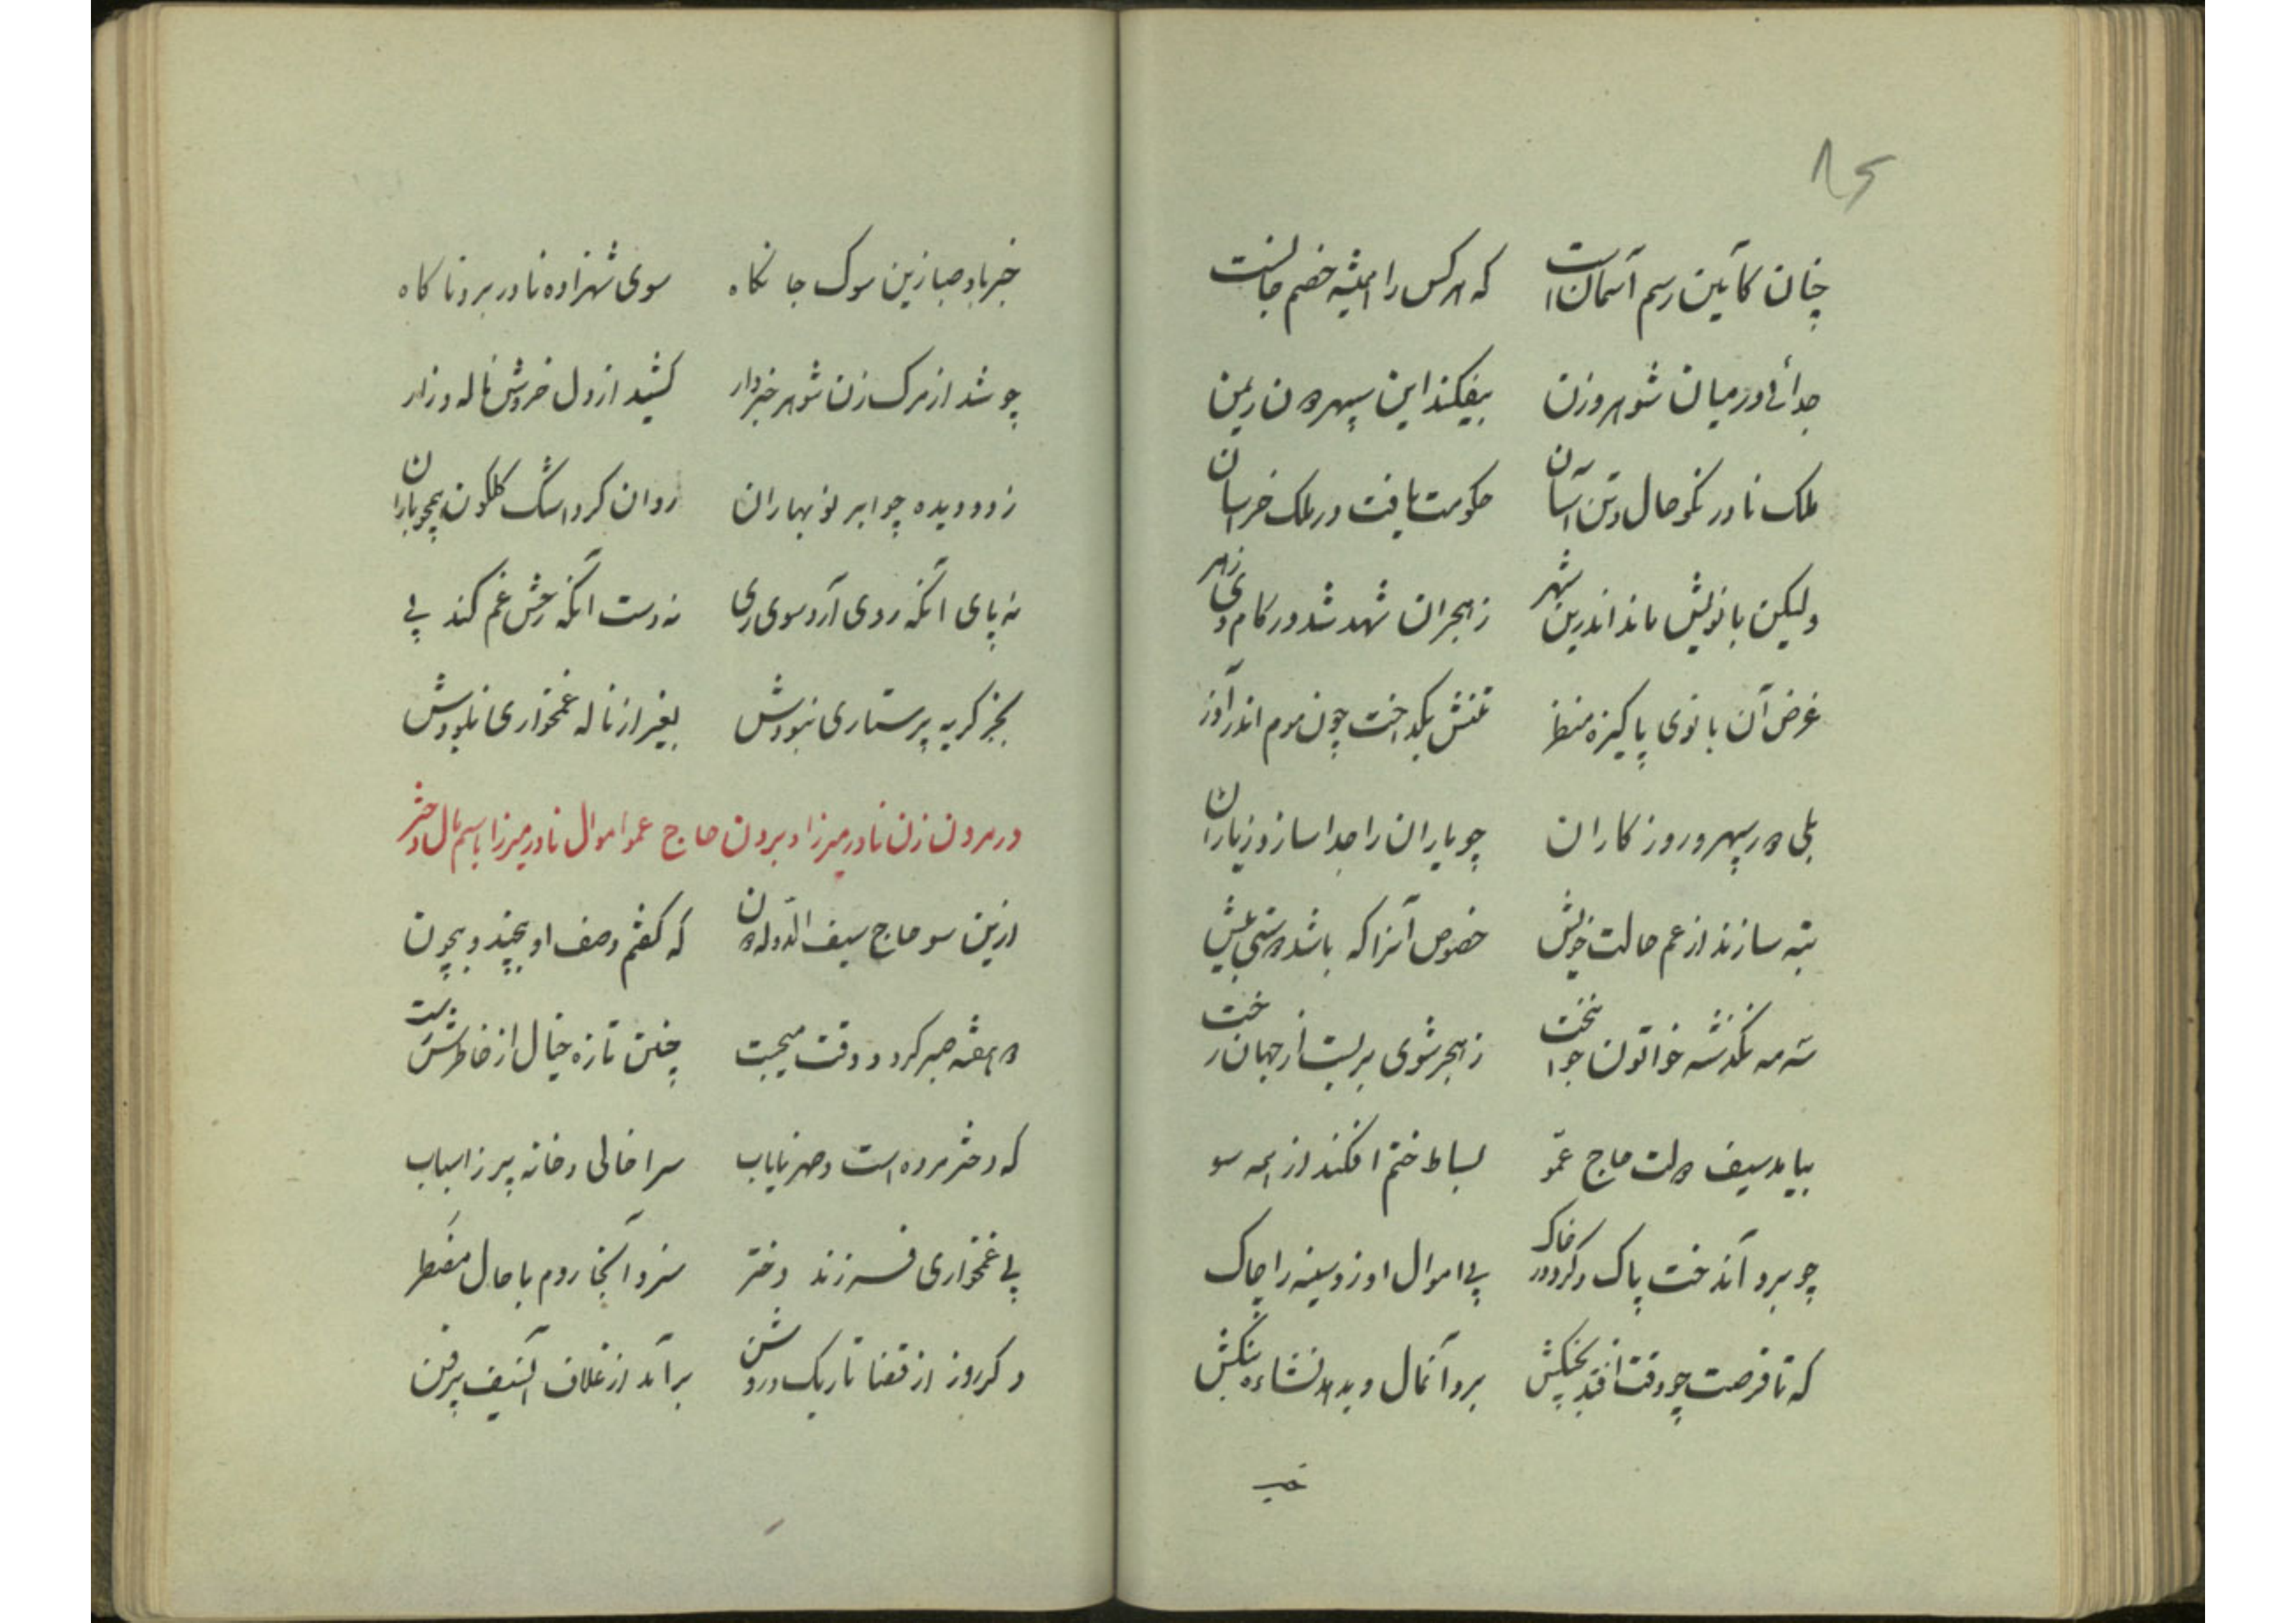 ۸۶
چنان کآیین رسم آسمان است که هرکس را همیشه خصم جانست
جدائی در میان شوهر و زن بیفکند این سپهر دون ریمن
ملک نادر نکو حال و تن آسان حکومت یافت در ملک خراسان
ولیکن بانویش ماند اندرین شهر زهجران شهد شد در کام وی زهر
غرض آن بانوی پاکیزه منظر تنش بگداخت چون موم اندر آذر
بلی در سپهر و روزکاران چو یاران را جدا سازد زیاران
تبه سازند از غم حالت خویش خصوص آنرا که باشد مستیش بیش
سه مه نکذشته خواتون جوانبخت زهجر شوی بربست از جهان رخت
بیامد سیف دولت حاج عمّو بساط ختم افکند از همه سو
چو برد آندخت پاک وکرد در خاک پی اموال او زد سینه را چاک
که تا فرصت چو وقت افتد بچنکش برد آنمال و بدهد نشاءه بنکش
خبر باد صبا زین سوک جانکاه سوی شهزاده نادر برد ناکاه
چو شد از مرک زن شوهر خبردار کشید از دل خروش ناله و زار
ز دو دیده چو ابر نوبهاران روان کرد اشک کلکون همچو باران
نه پای آنکه روی آرد سوی ری نه دست آنکه رخش غم کند پی
بجز کریه پرستاری نبودش بغیر از ناله غمخواری نبودش
در مردن زن نادرمیرزا و بردن حاج عمو اموال نادرمیرزا باسم مال دختر
ازین سو حاج سیف الدّوله دون که کفتم وصف او بیچند و بیچون
دو هفته صبر کرد و وقت میجست چنین تازه خیال از خاطرش رست
که دختر مرده است و صهر نایاب سرا خالی و خانه پر ز اسباب
پی غمخواری فرزند دختر سزد آنجا روم با حال مضطر
دکر روز از قضا تاریک و روشن برآمد از غلاف آنسیف پرفن